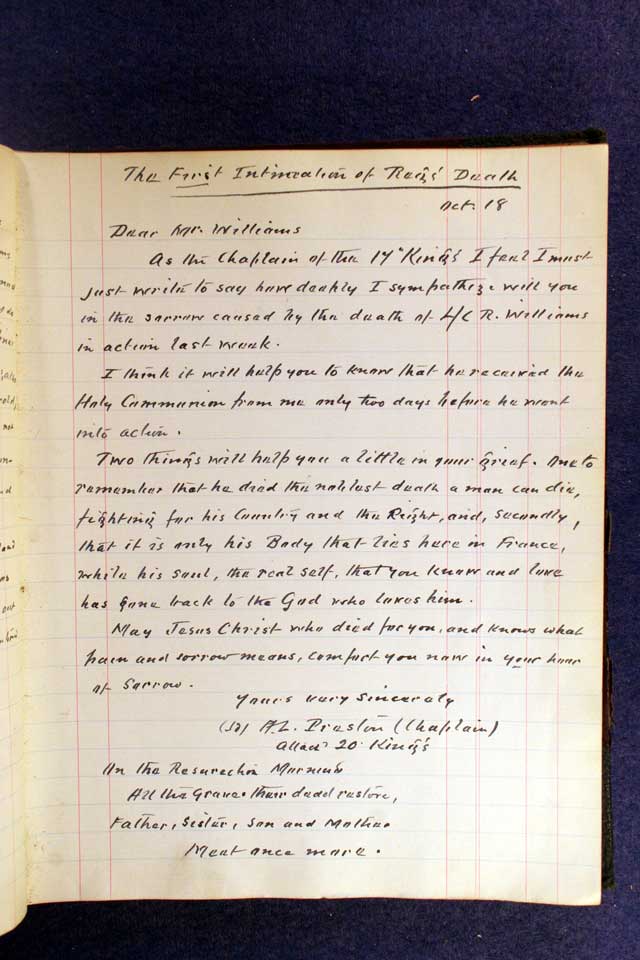 The First Intimation of Reg's' Death
Oct. 18
Dear Mr. Williams
As the Chaplain of the 17" King's I feel I must
just write to say how deeply I sympathize with you
in the sorrow caused by the death of L/C R. Williams
in action last week.
I think it will help you to know that he received the
Holy Communion from me only two days before he went
into action.
Two things will help you a little in your grief. One to
remember that he died the noblest death a man can die,
fighting for his Country and the Right, and, secondly,
that it is only his Body that lies here in France,
while his soul, the real self, that you know and love
has gone back to the God who loves him.
May Jesus Christ who died for you, and knows what
pain and sorrow means, comfort you now in your hour
of Sorrow.
Yours very sincerely
(Sd) A.L. Preston (Chaplain)
Attacd 20 King's
On the Resurection Morning
All the Graves their dead restore,
Father, Sister, Son and Mother
Meet once more.